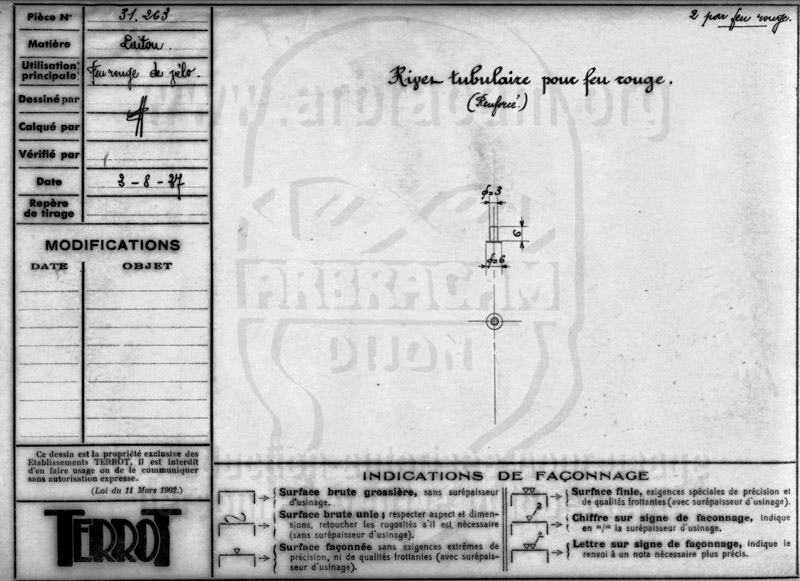 Pièce N° 31.263
Matière Laiton.
Utilisation principale feu rouge de vélo.
Dessiné par
Calqué par
Vérifié par
Date 3-8-37
Repère de tirage
MODIFICATIONS
DATE OBJET
Ce dessin est la propriété exclusive des
Etablissements TERROT, il est interdit
d'en faire usage ou de le communiquer
sans autorisation expresse.
(Loi du 11 Mars 1902.)
TERROT
2 par feu rouge.
Rivet tubulaire pour feu rouge.
(Renforcé.)
ϕ=3
6
ϕ=6
www.arbracam.org
ARBRACAM
DIJON
INDICATIONS DE FAÇONNAGE
Surface brute grossière, sans surépaisseur
d'usinage.
Surface brute unie; respecter aspect et dimen-
sions, retoucher les rugosités s'il est nécessaire
(sans surépaisseur d'usinage).
Surface façonnée sans exigences extrêmes de
précision, ni de qualités frottantes (avec surépais-
seur d'usinage).
Surface finie, exigences spéciales de précision et
de qualités frottantes (avec surépaisseur d'usinage).
2
Chiffre sur signe de façonnage, indique
en m/m la surépaisseur d'usinage.
a
Lettre sur signe de façonnage, indique le
renvoi à un nota nécessaire plus précis.